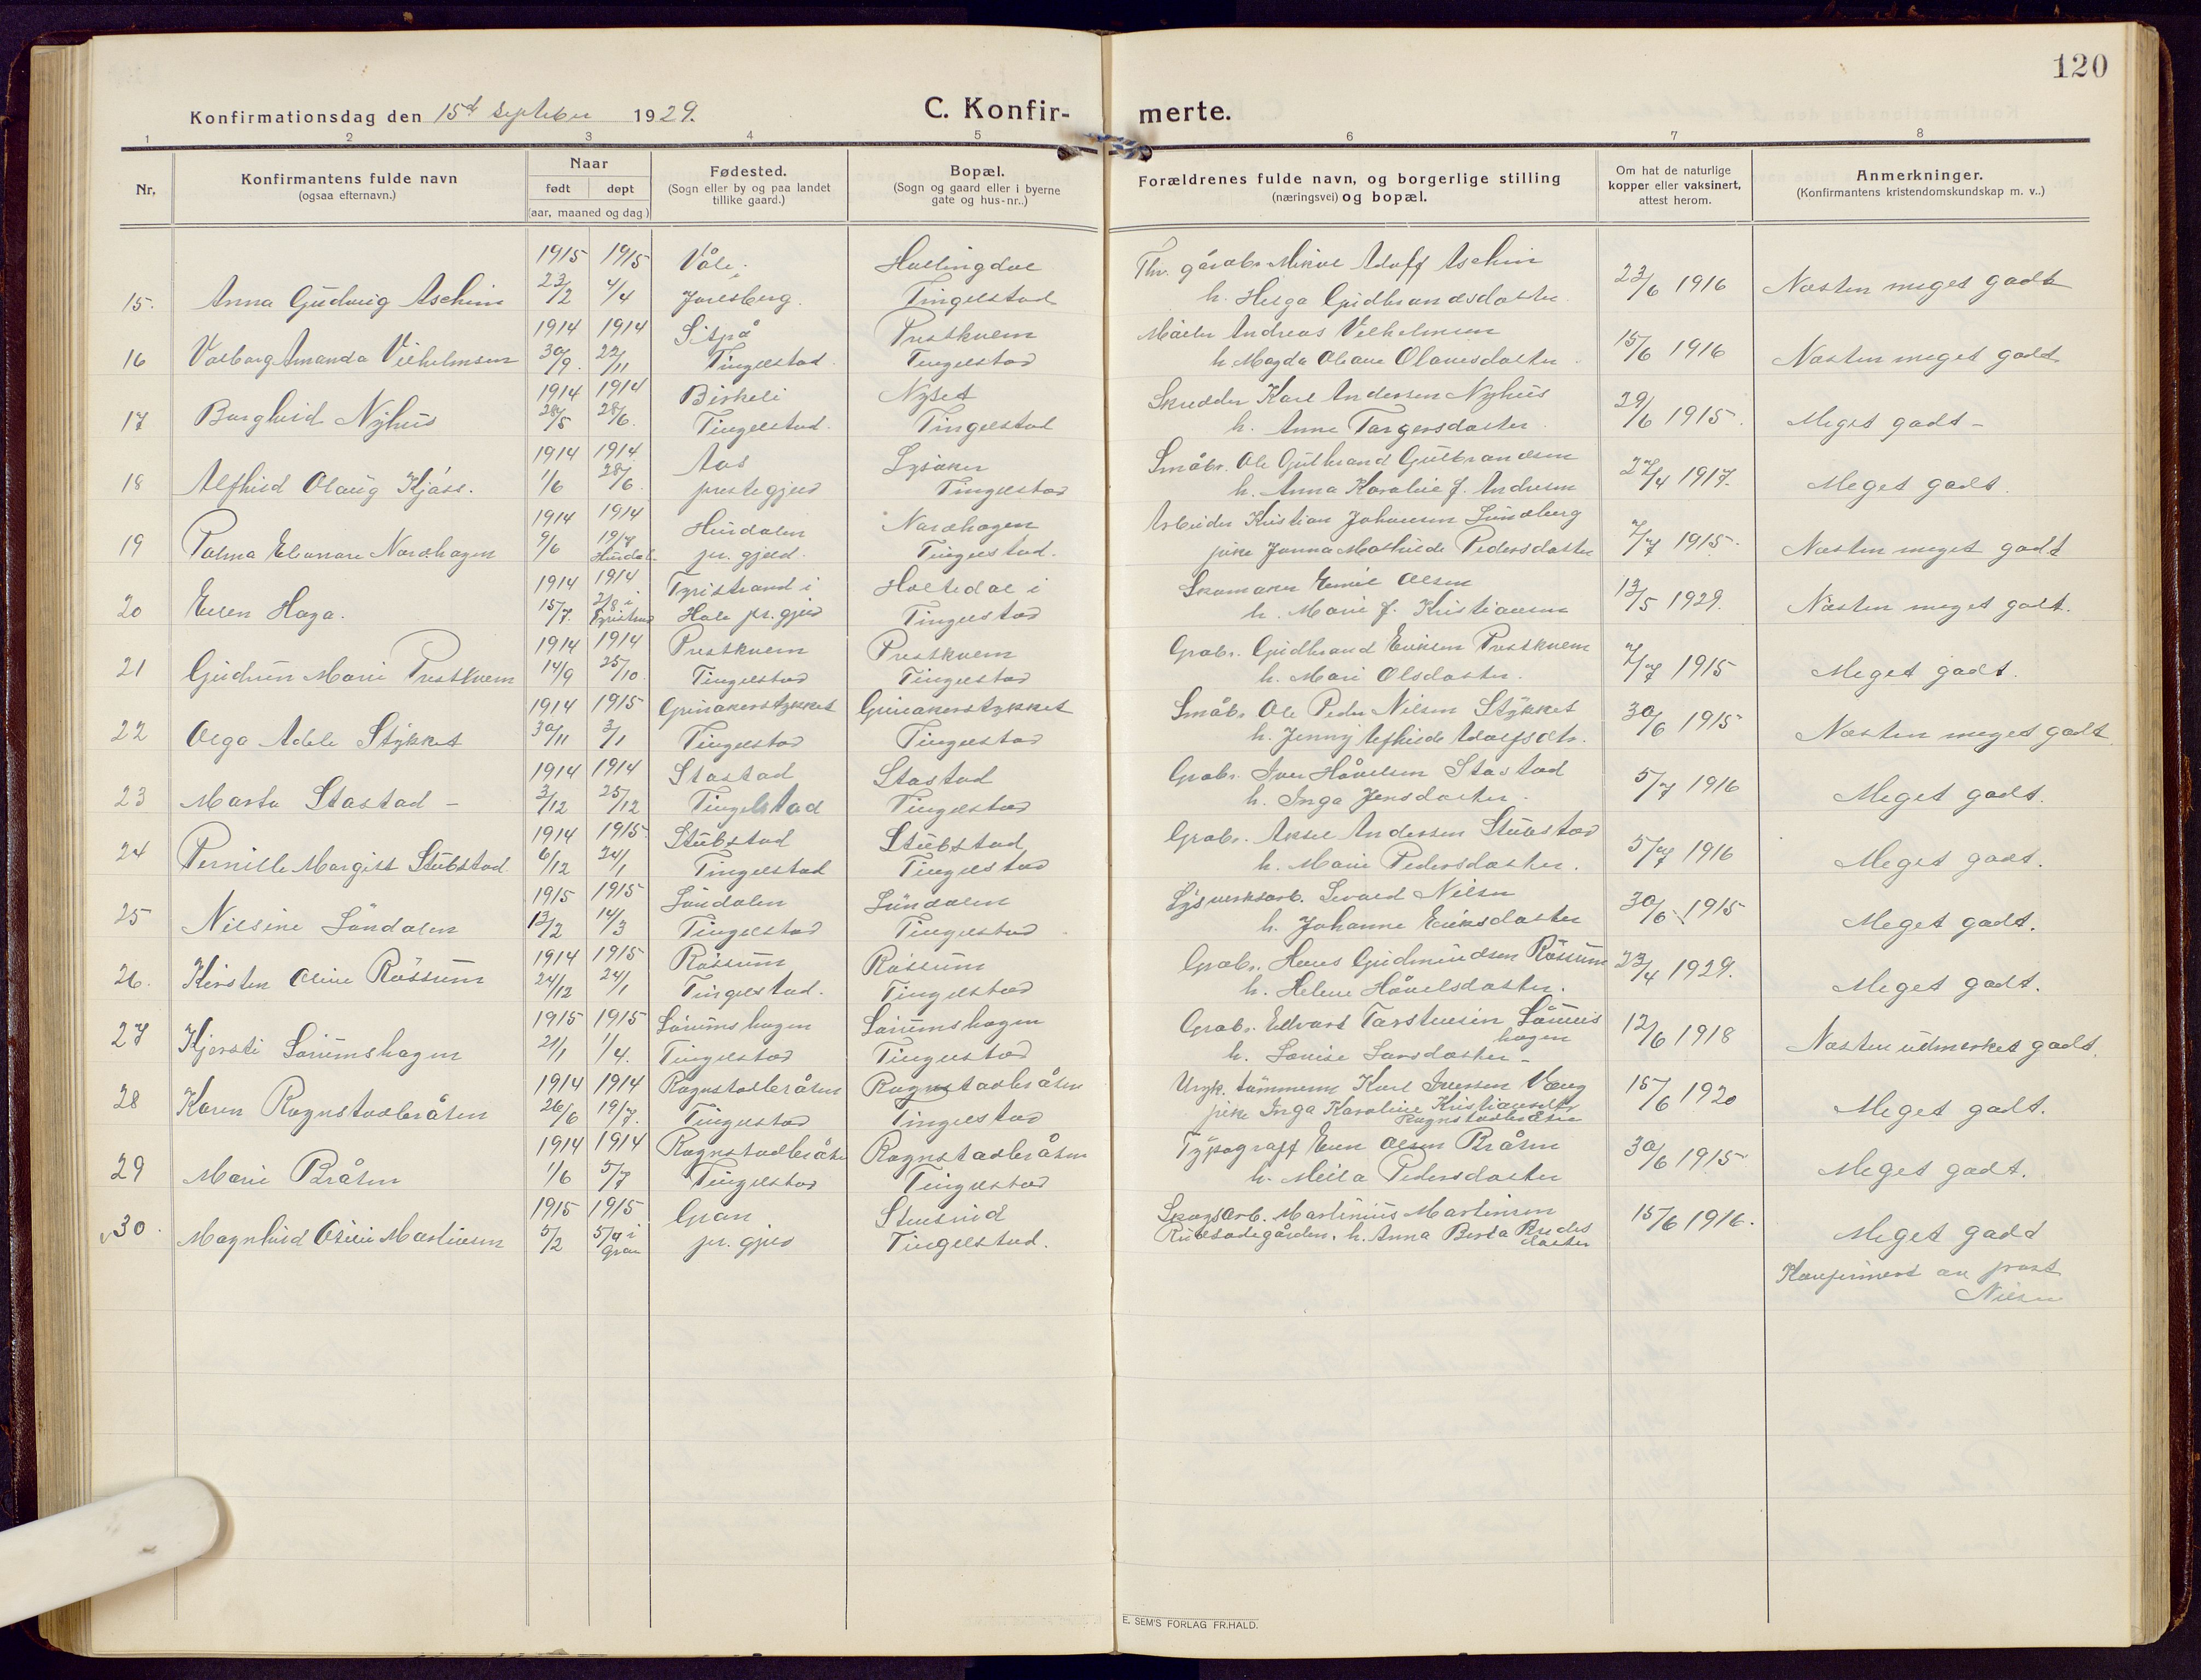 120
Konfirmationsdag den 15d september 1929. C. Konfir- merte.
1 2 3 4 5 6 7 8
Nr.
Konfirmantens fulde navn
(ogsaa efternavn.)
Naar
født døpt
(aar, maaned og dag)
Fødested.
(Sogn eller by og paa landet
tillike gaard.)
Bopæl.
(Sogn og gaard eller i byerne
gate og hus-nr..)
Forældrenes fulde navn, og borgerlige stilling
(næringsvei) og bopæl.
Om hat de naturlige
kopper eller vaksinert,
attest herom.
Anmerkninger.
(Konfirmantens kristendomskundskap m. v..)
1915 1915 Våle. Hallingdal Adolf Aschim
15. Anna Gudvig Aschim 23/2 4/4 Jarlsberg. Tingelstad h. Helga Gudbrandsdatter. 23/6 1916 Næsten meget godt
1914 1914 Prestkvern Maler Andreas Vilhelmsen
16 Valborg Amanda Vilhelmsen 30/9. 22/11 Tingelstad. Tingelstad h. Magda Oliane Olavesdatter. 15/6 1916 Næsten meget godt.
1914 1914 Birkeli Nyset Skredder Karl Andersen Nyhus
17 Borghild Nyhus 28/5 28/6. Tingelstad. Tingelstad h. Anne Torgersdatter. 29/6 1915. Meget godt -
1914 1914 Aas Lysaker Småbr. Ole Gulbrand Gulbrandsen
18 Alfhild Olaug Kjåss. 1/6 28/6. prestegjeld Tingelstad h. Anna Karoline f. Andresen 27/4 1917. Meget godt.
1914 1914 Hurdalen Nordhagen Arbeider Kristian Johansen Sundberg
19 Palma Eleonore Nordhagen 9/6 19/7 Hurdal. pr. gjeld. Tingelstad. pike Janna Mathilde Pedersdatter 7/7 1915. Næsten meget godt
1914 1914 Tyristrand i Holtedal i Skomaker Emil Olsen
20 Ellen Haga. 15/7. 2/8 i Hole pr. gjeld Tingelstad h. Marie f. Kristiansen 13/5 1929. Næsten meget godt.
1914 1914 Prestkvern Prestkvern Grabr. Gudbrand Eriksen Prestkvern
21 Gudrun Marie Prestkvern 14/9 25/10. Tingelstad Tingelstad h. Mari Olsdatter. 7/7 1915 Meget godt.
1914 1915 Grinakerstykket Grinakerstykket Småbr. Ole Peder Nilsen Stykket
22 Olga Adele Stykket 30/11 3/1 Tingelstad Tingelstad h. Jenny Alfhilde Adolfsdtr. 30/6 1915 Næsten meget godt.
1914 1914 Stastad Stastad Grabr. Iver Håvelsen Stastad
23 Marta Stastad - 3/12 25/12 Tingelstad Tingelstad h. Inga Jensdatter. 5/7 1916 Meget godt.
1914 1915. Stubstad Stubstad Grabr. Aksel Andersen Stubstad
24 Pernille Margit Stubstad. 6/12 24/1 Tingelstad Tingelstad h. Marie Pedersdatter. 5/7 1916 Meget godt.
1915 1915 Sundalen Lysverksarb. Sevald Nilsen
25 Nilsine 13/2 14/3 Tingelstad Tingelstad. h. Johanne Eriksdatter 30/6 1915 Meget godt.
1914 1915 Røssum Røssum Grabr. Hans Gudmundsen Røssum
26. Kirsten Oline Røssum 24/12 24/1 Tingelstad. Tingelstad h. Helene Håvelsdatter. 23/4 1929. Meget godt.
1915 1915 Sørumshagen Sørumshagen Grabr. Edvart Torstensen
27 Kjersti Sørumshagen 21/1 1/4. Tingelstad Tingelstad hagen h. Lovise Larsdatter - 12/6 1918 Næsten udmerket godt.
1914 1914 Rognstadbråten Rognstadbråten Ungk. tømmerm. Karl Iversen
28 Karen Rognstadbråten 26/6 19/7. Tingelstad Tingelstad pike Inga Karoline Kristiansdtr Rognstadbråten 15/6 1920 Meget godt.
1914 1914 Rognstadbråten Rognstadbråten Typograff Olsen Bråten
29 Marie Bråten 1/6 5/7 Tingelstad Tingelstad h. Pedersdatter 30/6 1915 Meget godt.
1915 1915 Gran Stensrud Skogsarb. Martinius Martinsen
30. Magnhild Martinsen 5/2 5/4 i Gran pr. gjeld Tingelstad. h. Anna Berta datter 15/6 1916. Meget godt
Konfirmert av prost
Nilsen
E. SEM'S FORLAG FR.HALD.